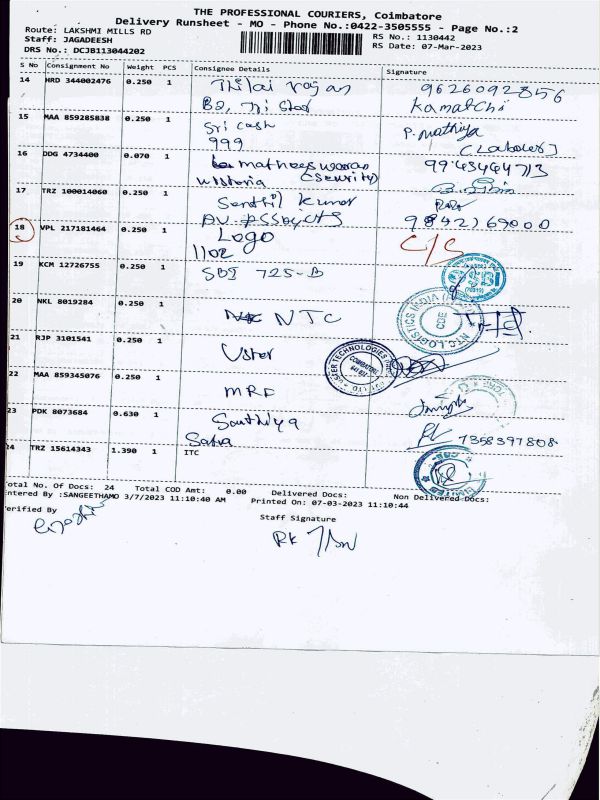 THE PROFESSIONAL COURIERS, Coimbatore
Delivery Runsheet - MO - Phone No.:0422-3505555 - Page No.:2
Route: LAKSHMI MILLS RD
Staff: JAGADEESH
DRS No.: DCJB113044202
RS No.: 1130442
RS Date: 07-Mar-2023
S No Consignment No Weight PCS Consignee Details Signature
14 HRD 344002476 0.250 1 Thilai rajan 9626092856
B2, Tri Star Kamatchi
15 MAA 859285838 0.250 1 Sri cash P. Mathiya
999 (Labourer)
16 DDG 4734400 0.070 1 matheeswaran 9943494713
(Security)
17 TRZ 100014060 0.250 1 Senthil kumar
AV. 9842269000
18 VPL 217181464 0.250 1 Logo C/S
1102
19 KCM 12726755 0.250 1 SBI 725-B
SBI
20 NKL 8019284 0.250 1 NTC
NTC LOGISTICS INDIA
CDE
21 RJP 3101541 0.250 1 Uster
TECHNOLOGIES
COIMBATORE
22 MAA 859345076 0.250 1 MRF
23 PDK 8073684 0.630 1 Southiya 7358397808
24 TRZ 15614343 1.390 1 ITC
Total No. Of Docs: 24 Total COD Amt: 0.00 Delivered Docs: Non Delivered Docs:
Entered By :SANGEETHAMO 3/7/2023 11:10:40 AM Printed On: 07-03-2023 11:10:44
Verified By
Staff Signature